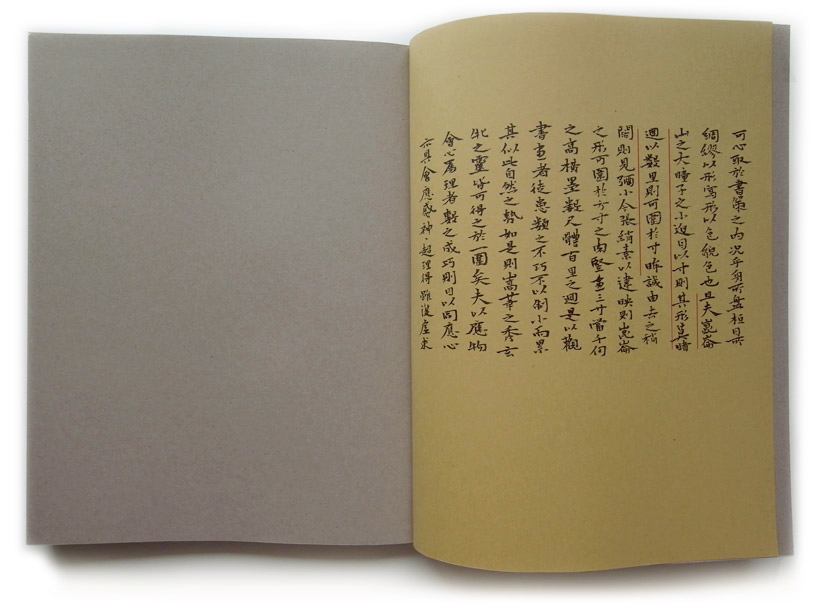 可心取於書策之內況乎身所盤桓目所
綢繆以形寫形以色貌色也且夫崑崙
山之大瞳子之小迫目以寸則其形莫睹
迥以數里則可圍於寸眸誠由去之稍
闊則見彌小今張綃素以遠映則崑崙
之形可圍於方寸之內豎畫三寸當千仞
之高橫墨數尺體百里之迥是以觀
書畫者徒患類之不巧不以制小而累
其似此自然之勢如是則嵩華之秀玄
牝之靈皆可得之於一圖矣夫以應物
會心為理者類之成巧則目以同應心
亦具會應感神、超理得雖復虛求